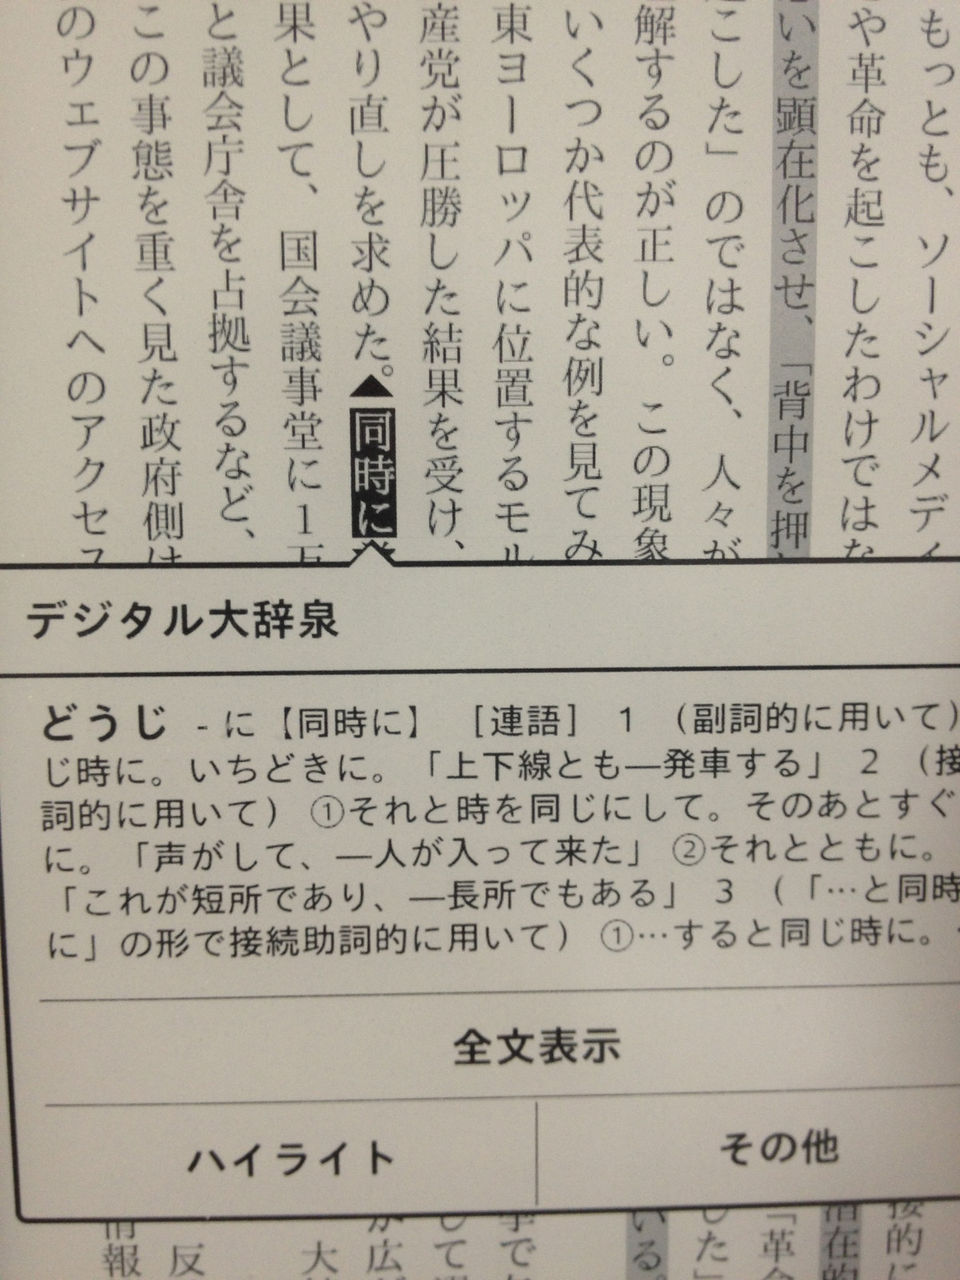 もっとも、ソーシャルメディ
や革命を起こしたわけではな
いを顕在化させ、「背中を押
こした」のではなく、人々が
解するのが正しい。この現象
いくつか代表的な例を見てみ
東ヨーロッパに位置するモル
産党が圧勝した結果を受け、
やり直しを求めた。▲同時に
果として、国会議事堂に1万
と議会庁舎を占拠するなど、
この事態を重く見た政府側は
のウェブサイトへのアクセス
デジタル大辞泉
どうじ -に【同時に】 [連語] 1 (副詞的に用いて)
じ時に。いちどきに。「上下線とも―発車する」 2 (接
詞的に用いて) ①それと時を同じにして。そのあとすぐ
に。「声がして、―人が入って来た」 ②それとともに。
「これが短所であり、―長所でもある」 3 (「…と同時
に」の形で接続助詞的に用いて) ①…すると同じ時に。
全文表示
ハイライト
その他
接的に
潜在的
「革命
した」
いる。
して
が広
大
反
情報